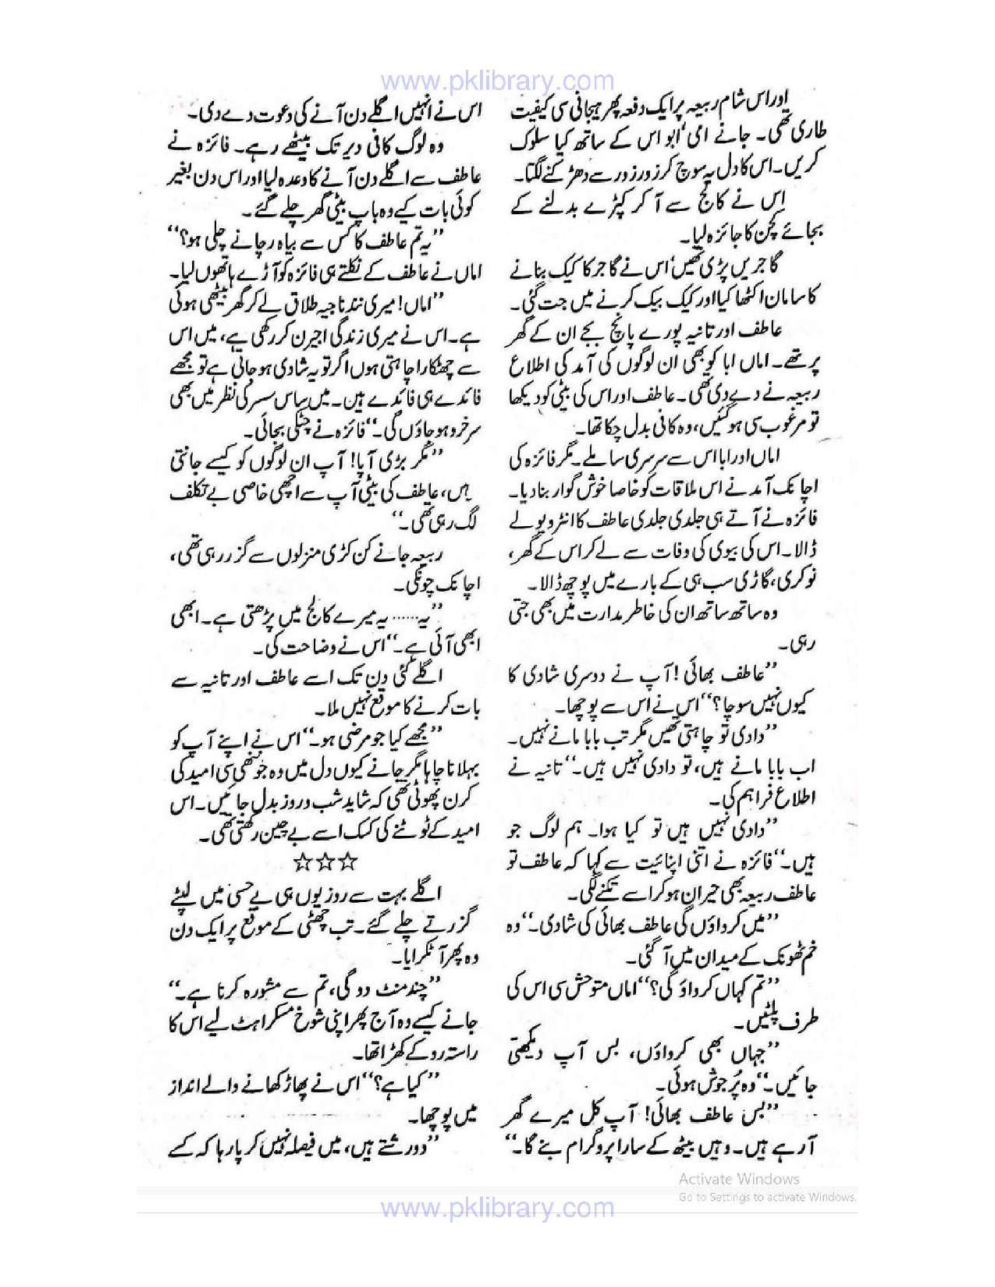 www.pklibrary.com
اور اس شام ربیعہ پر ایک دفعہ پھر ہیجانی سی کیفیت
طاری تھی۔ جانے امی ابو اس کے ساتھ کیا سلوک
کریں۔ اس کا دل یہ سوچ کر زور زور سے دھڑکنے لگتا۔
اس نے کالج سے آ کر کپڑے بدلنے کے
بجائے کچن کا جائزہ لیا۔
گاجریں پڑی تھیں، اس نے گاجر کا کیک بنانے
کا سامان اکٹھا کیا اور کیک بیک کرنے میں جت گئی۔
عاطف اور تانیہ پورے پانچ بجے ان کے گھر
پر تھے۔ اماں ابا کو بھی ان لوگوں کی آمد کی اطلاع
ربیعہ نے دے دی تھی۔ عاطف اور اس کی بیٹی کو دیکھا
تو مرغوب سی ہو گئیں، وہ کافی بدل چکا تھا۔
اماں اور ابا اس سے سرسری سا ملے۔ مگر فائزہ کی
اچانک آمد نے اس ملاقات کو خاصا خوش گوار بنا دیا۔
فائزہ نے آتے ہی جلدی جلدی عاطف کا انٹرویو لے
ڈالا۔ اس کی بیوی کی وفات سے لے کر اس کے گھر،
نوکری، گاڑی سب ہی کے بارے میں پوچھ ڈالا۔
وہ ساتھ ساتھ ان کی خاطر مدارت میں بھی جتی
رہی۔
”عاطف بھائی! آپ نے دوسری شادی کا
کیوں نہیں سوچا؟“ اس نے اس سے پوچھا۔
”دادی تو چاہتی تھیں مگر تب بابا مانے نہیں۔
اب بابا مانے ہیں، تو دادی نہیں ہیں۔“ تانیہ نے
اطلاع فراہم کی۔
”دادی نہیں ہیں تو کیا ہوا۔ ہم لوگ جو
ہیں۔“ فائزہ نے اتنی اپنائیت سے کہا کہ عاطف تو
عاطف ربیعہ بھی حیران ہو کر اسے تکنے لگی۔
”میں کرواؤں گی عاطف بھائی کی شادی۔“ وہ
خم ٹھونک کے میدان میں آ گئی۔
”تم کہاں کرواؤ گی؟“ اماں متوحش سی اس کی
طرف پلٹیں۔
”جہاں بھی کرواؤں، بس آپ دیکھتی
جائیں۔“ وہ پُر جوش ہوئی۔
”بس عاطف بھائی! آپ کل میرے گھر
آ رہے ہیں۔ وہیں بیٹھ کے سارا پروگرام بنے گا۔“
اس نے انہیں اگلے دن آنے کی دعوت دے دی۔
وہ لوگ کافی دیر تک بیٹھے رہے۔ فائزہ نے
عاطف سے اگلے دن آنے کا وعدہ لیا اور اس دن بغیر
کوئی بات کیے وہ باپ بیٹی گھر چلے گئے۔
”یہ تم عاطف کا کس سے بیاہ رچانے چلی ہو؟“
اماں نے عاطف کے نکلتے ہی فائزہ کو آڑے ہاتھوں لیا۔
”اماں! میری نند ناجیہ طلاق لے کر گھر بیٹھی ہوئی
ہے۔ اس نے میری زندگی اجیرن کر رکھی ہے، میں اس
سے چھٹکارا چاہتی ہوں اگر تو یہ شادی ہو جاتی ہے تو مجھے
فائدے ہی فائدے ہیں۔ میں ساس سسر کی نظر میں بھی
سرخرو ہو جاؤں گی۔“ فائزہ نے چٹکی بجائی۔
”مگر بڑی آپا! آپ ان لوگوں کو کیسے جانتی
ہیں، عاطف کی بیٹی آپ سے اچھی خاصی بے تکلف
لگ رہی تھی۔“
ربیعہ جانے کن کڑی منزلوں سے گزر رہی تھی،
اچانک چونکی۔
”یہ...... یہ میرے کالج میں پڑھتی ہے۔ ابھی
ابھی آئی ہے۔“ اس نے وضاحت کی۔
اگلے کئی دن تک اسے عاطف اور تانیہ سے
بات کرنے کا موقع نہیں ملا۔
”مجھے کیا جو مرضی ہو۔“ اس نے اپنے آپ کو
بہلانا چاہا مگر جانے کیوں دل میں وہ جو ننھی سی امید کی
کرن پھوٹی تھی کہ شاید شب و روز بدل جائیں۔ اس
امید کے ٹوٹنے کی کسک اسے بے چین رکھتی تھی۔
☆☆☆
اگلے بہت سے روز یوں ہی بے حسی میں لپٹے
گزرتے چلے گئے۔ تب چھٹی کے موقع پر ایک دن
وہ پھر آ ٹکرایا۔
”چند منٹ دو گی، تم سے مشورہ کرنا ہے۔“
جانے کیسے وہ آج پھر اپنی شوخ مسکراہٹ لیے اس کا
راستہ روکے کھڑا تھا۔
”کیا ہے؟“ اس نے پھاڑ کھانے والے انداز
میں پوچھا۔
”دو رشتے ہیں، میں فیصلہ نہیں کر پا رہا کہ کسے
Activate Windows
Go to Settings to activate Windows.
www.pklibrary.com